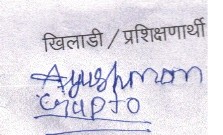 खिलाडी / प्रशिक्षणार्थी
Ayushman
Gupta